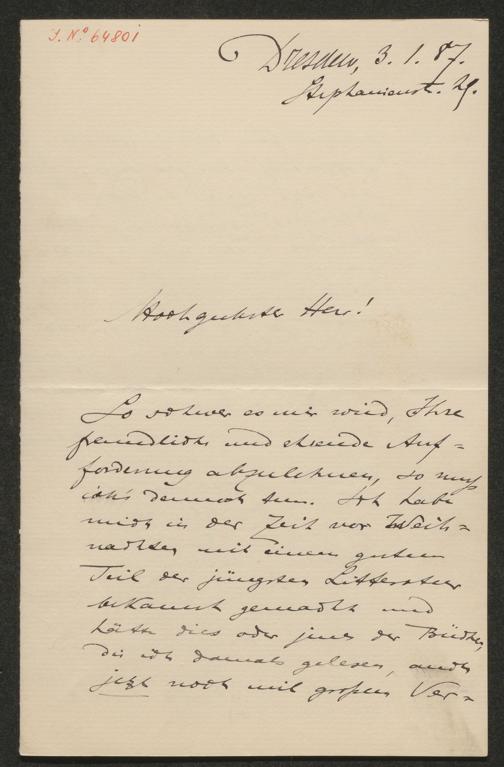 J. No 64801
Dresden, 3. 1. 87.
Stephanienstr. 29.
Hochgeehrter Herr!
So schwer es mir wird, Ihre
freundliche und ehrende Auf=
forderung abzulehnen, so muß
ich's dennoch tun. Ich habe
mich in der Zeit vor Weih=
nachten mit einem guten
Teil der jüngsten Litteratur
bekannt gemacht und
hätte dies oder jenes der Bücher,
die ich damals gelesen, auch
jetzt noch mit großem Ver=